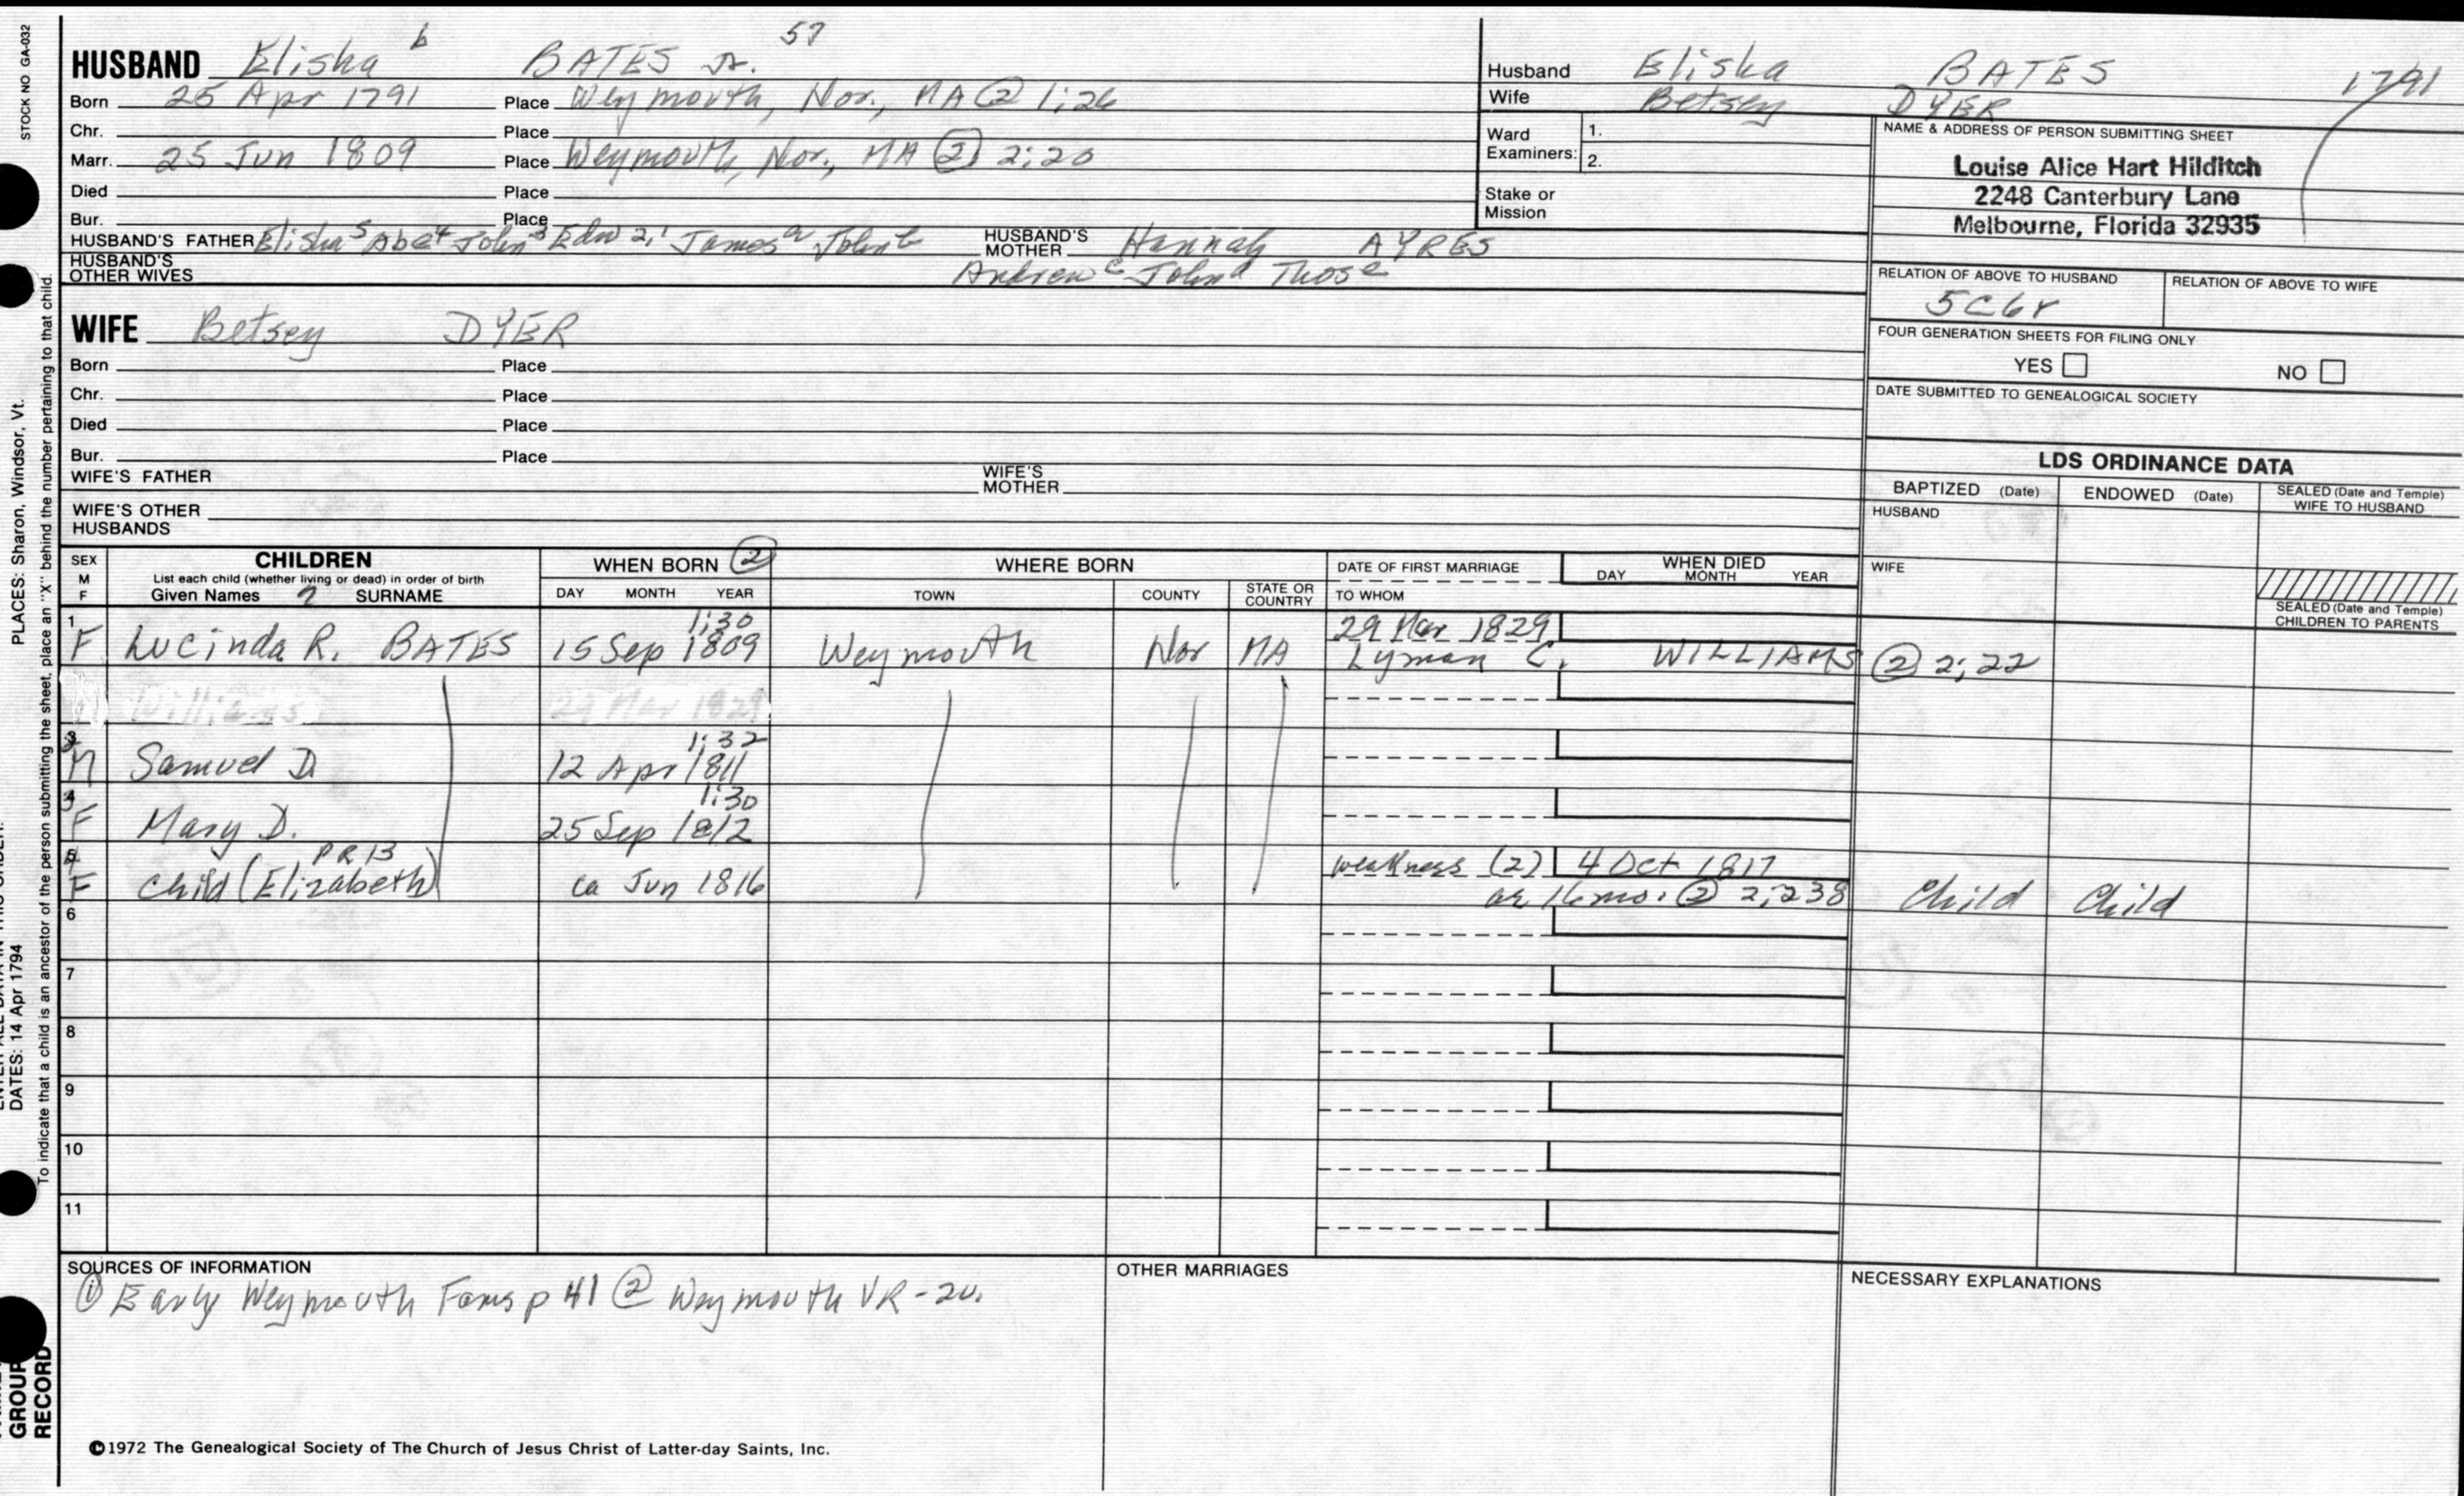 STOCK NO GA-032
HUSBAND Elisha 6 BATES Jr. 57
Born 25 Apr 1791 Place Weymouth, Nor., MA @ 1:26
Chr. Place
Marr. 25 Jun 1809 Place Weymouth, Nor., MA ② 2:20
Died Place
Bur. Place
HUSBAND'S FATHER Elisha 5 Abe 4 John 3 Edw 2,1 James a John b HUSBAND'S MOTHER Hannah AYRES
HUSBAND'S OTHER WIVES Andrew c John d Thos e
Husband Elisha BATES 1791
Wife Betsey DYER
Ward Examiners: 1.
2.
Stake or Mission
NAME & ADDRESS OF PERSON SUBMITTING SHEET
Louise Alice Hart Hilditch
2248 Canterbury Lane
Melbourne, Florida 32935
RELATION OF ABOVE TO HUSBAND RELATION OF ABOVE TO WIFE
5C6r
FOUR GENERATION SHEETS FOR FILING ONLY
YES NO
DATE SUBMITTED TO GENEALOGICAL SOCIETY
WIFE Betsey DYER
Born Place
Chr. Place
Died Place
Bur. Place
WIFE'S FATHER WIFE'S MOTHER
WIFE'S OTHER HUSBANDS
LDS ORDINANCE DATA
BAPTIZED (Date) ENDOWED (Date) SEALED (Date and Temple) WIFE TO HUSBAND
HUSBAND
WIFE
SEALED (Date and Temple) CHILDREN TO PARENTS
SEX M F
CHILDREN
List each child (whether living or dead) in order of birth
Given Names SURNAME
WHEN BORN ②
DAY MONTH YEAR
WHERE BORN
TOWN COUNTY STATE OR COUNTRY
DATE OF FIRST MARRIAGE
TO WHOM
WHEN DIED
DAY MONTH YEAR
1 F Lucinda R. BATES 1:30 15 Sep 1809 Weymouth Nor MA 29 Mar 1829 Lyman C. WILLIAMS ② 2:22
Williams 29 Mar 1829
3 M Samuel D. 1:32 12 Apr 1811
4 F Mary D. 1:30 25 Sep 1812
5 F Child (Elizabeth) PR 13 ca Jun 1816 weakness (2) 4 Oct 1817
ae 16 mo. ② 2:238 Child Child
6
7
8
9
10
11
SOURCES OF INFORMATION
① Early Weymouth Fams p 41 ② Weymouth VR-2v.
OTHER MARRIAGES
NECESSARY EXPLANATIONS
©1972 The Genealogical Society of The Church of Jesus Christ of Latter-day Saints, Inc.
PLACES: Sharon, Windsor, Vt.
DATES: 14 Apr 1794
To indicate that a child is an ancestor of the person submitting the sheet, place an "X" behind the number pertaining to that child.
GROUP
RECORD